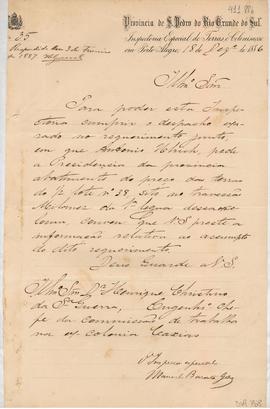 411 886
Provincia de S. Pedro do Rio Grande do Sul.
Inspectoria Especial de Terras e Colonisação
em Porto Alegre, 18 de 1886
35
Respondido em 3 de
de 1887
Illmo Snr
Para poder esta Inspe-
ctoria cumprir o despacho ex-
arado no requerimento junto,
em que Antonio pede
a Presidencia da provincia
abatimento do preço das terras
do lote nº 38, sito no travessão
da 1ª legua dessa ex-
colonia, convem que V.S. preste a
informação relativa ao assumpto
do dito requerimento.
Deus Guarde a V.S.
Illmo Snr Dr Henrique Christino
da Sª Guerra, Engenheiro Che-
fe da commissão de trabalhos
na ex colonia Caxias
O Inspector especial
Manuel